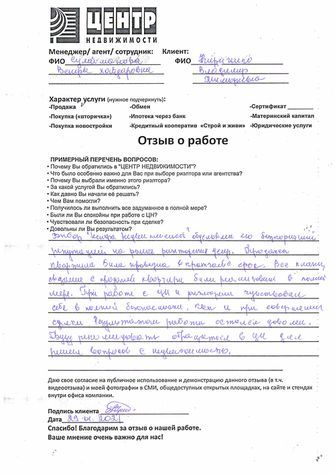 ЦЕНТР
НЕДВИЖИМОСТИ
Менеджер/ агент/ сотрудник: Клиент:
ФИО Сулейманова ФИО
Венера Хайдаровна Владимир
Характер услуги (нужное подчеркнуть):
-Продажа -Обмен -Сертификат
-Покупка («вторичка») -Ипотека через банк -Материнский капитал
-Покупка новостройки -Кредитный кооператив «Строй и живи» -Юридические услуги
Отзыв о работе
ПРИМЕРНЫЙ ПЕРЕЧЕНЬ ВОПРОСОВ:
• Почему Вы обратились в "ЦЕНТР НЕДВИЖИМОСТИ"?
• Что было особенно важно для Вас при выборе риэлтора или агентства?
• Почему Вы выбрали именно этого риэлтора?
• За какой услугой Вы обратились?
• Как давно Вы начали её решать?
• Чем Вам помогли?
• Получилось ли выполнить все задуманное в полной мере?
• Были ли Вы спокойны при работе с ЦН?
• Чувствовали ли безопасность при сделке?
• Довольны ли Вы результатом?
Выбор "Центра недвижимости" обусловлен его безупречной
репутацией на рынке Продажа
квартиры была проведена в краткие сроки. Все планы,
связанные с продажей квартиры были реализованы в полной
мере. При работе с ЦН и риэлтором чувствовали
себя в полной безопасности, как и при совершении
сделки. Результатом работы остался доволен.
Буду рекомендовать обращаться в ЦН для
решения вопросов с недвижимостью.
Даю свое согласие на публичное использование и демонстрацию данного отзыва (в т.ч.
видеоотзыва) и моей фотографии в СМИ, общедоступных открытых площадках, на сайте и стендах
внутри офиса компании.
Подпись клиента
Дата 29 2021
Спасибо! Благодарим за отзыв о нашей работе.
Ваше мнение очень важно для нас!